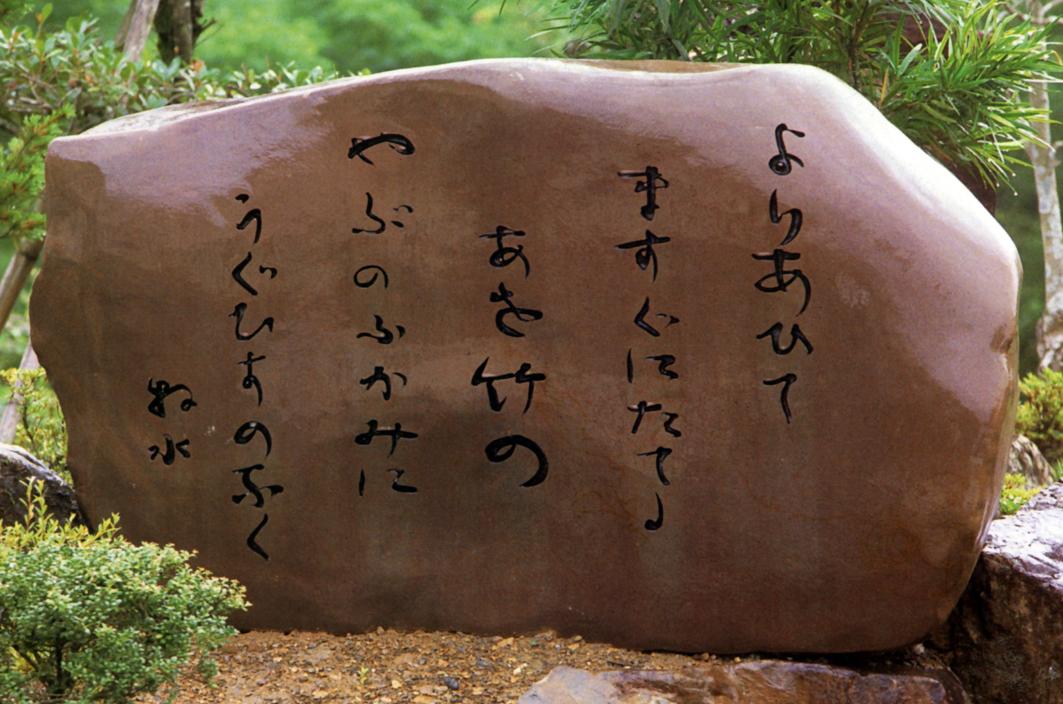 よりあひて
ますぐにたてる
あを竹の
やぶのふかみに
うぐひすのなく
牧水